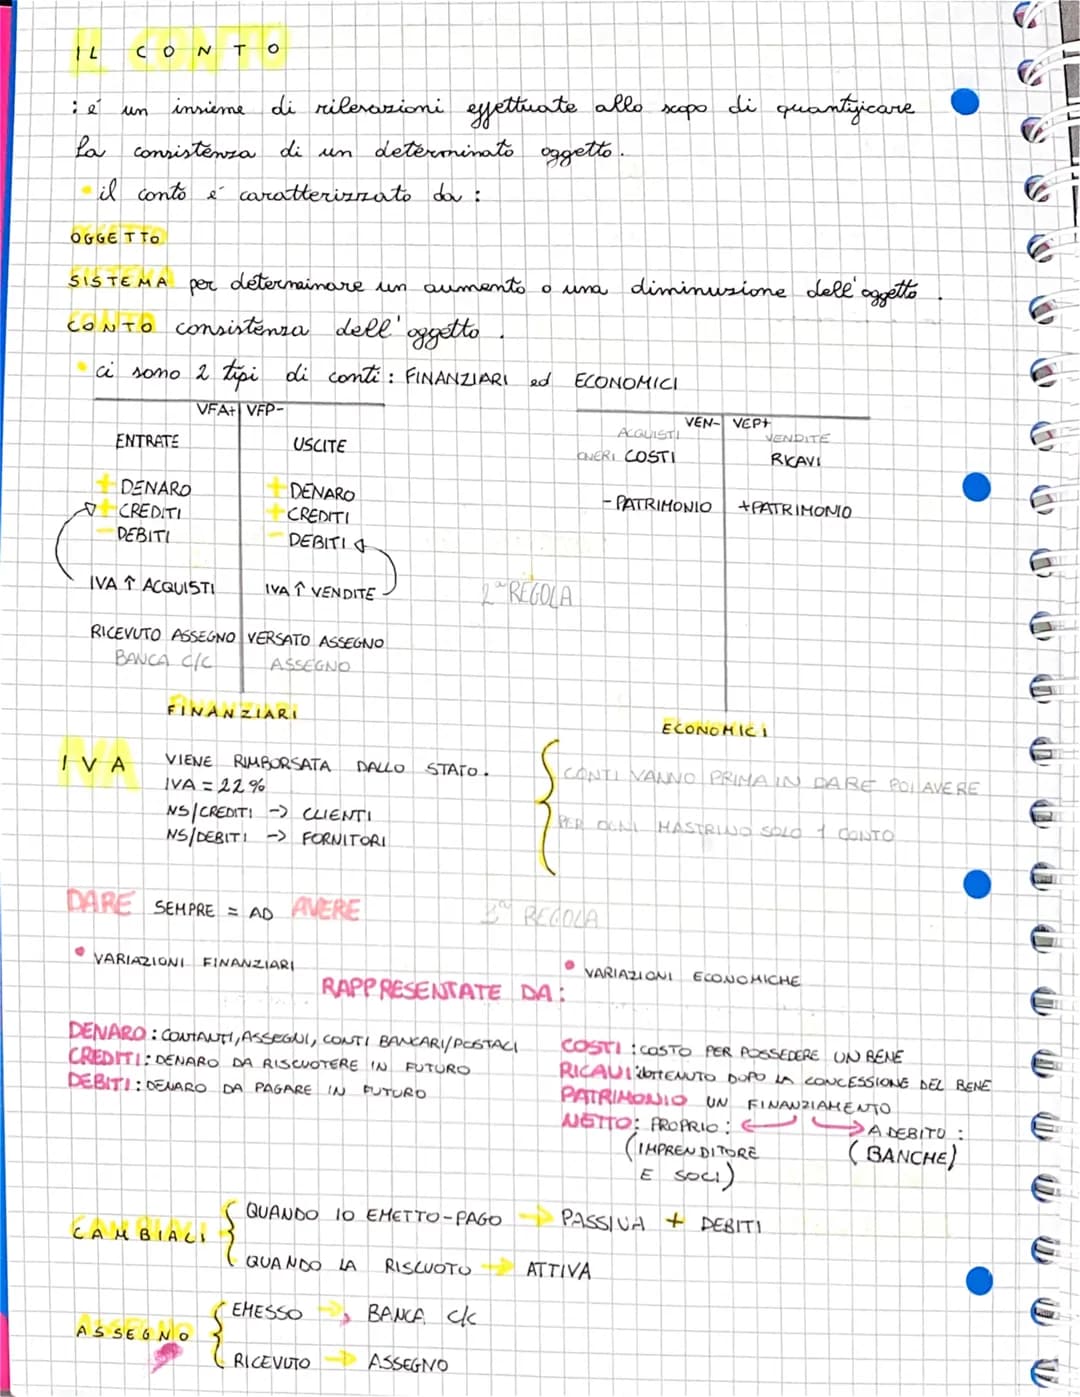 IL CONTO
: é un insieme di rilevazioni effettuate allo scopo di quantificare
la consistenza di un determinato oggetto.
• il conto é caratterizzato da :
OGGETTO
SISTEMA per determinare un aumento o una diminuzione dell'oggetto .
CONTO consistenza dell'oggetto .
• ci sono 2 tipi di conti : FINANZIARI ed ECONOMICI
VFA+ VFP-
ENTRATE USCITE
+ DENARO + DENARO
+ CREDITI + CREDITI
- DEBITI - DEBITI
IVA ↑ ACQUISTI IVA ↑ VENDITE
RICEVUTO ASSEGNO VERSATO ASSEGNO
BANCA C/C ASSEGNO
FINANZIARI
VEN- VEP+
ACQUISTI VENDITE
ONERI COSTI RICAVI
- PATRIMONIO +PATRIMONIO
2ª REGOLA
ECONOMICI
IVA VIENE RIMBORSATA DALLO STATO.
IVA = 22%
NS/CREDITI -> CLIENTI
NS/DEBITI -> FORNITORI
CONTI VANNO PRIMA IN DARE POI AVERE
PER OGNI MASTRINO SOLO 1 CONTO
DARE SEMPRE = AD AVERE
3ª REGOLA
• VARIAZIONI FINANZIARI
• VARIAZIONI ECONOMICHE
RAPPRESENTATE DA:
DENARO : CONTANTI, ASSEGNI, CONTI BANCARI/POSTALI
CREDITI : DENARO DA RISCUOTERE IN FUTURO
DEBITI : DENARO DA PAGARE IN FUTURO
COSTI : COSTO PER POSSEDERE UN BENE
RICAVI : OTTENUTO DOPO LA CONCESSIONE DEL BENE
PATRIMONIO UN FINANZIAMENTO
NETTO: PROPRIO : A DEBITO :
(IMPRENDITORE (BANCHE)
E SOCI)
CAMBIALI
QUANDO IO EMETTO-PAGO → PASSIVA + DEBITI
QUANDO LA RISCUOTO → ATTIVA
ASSEGNO
EMESSO → BANCA c/c
RICEVUTO → ASSEGNO